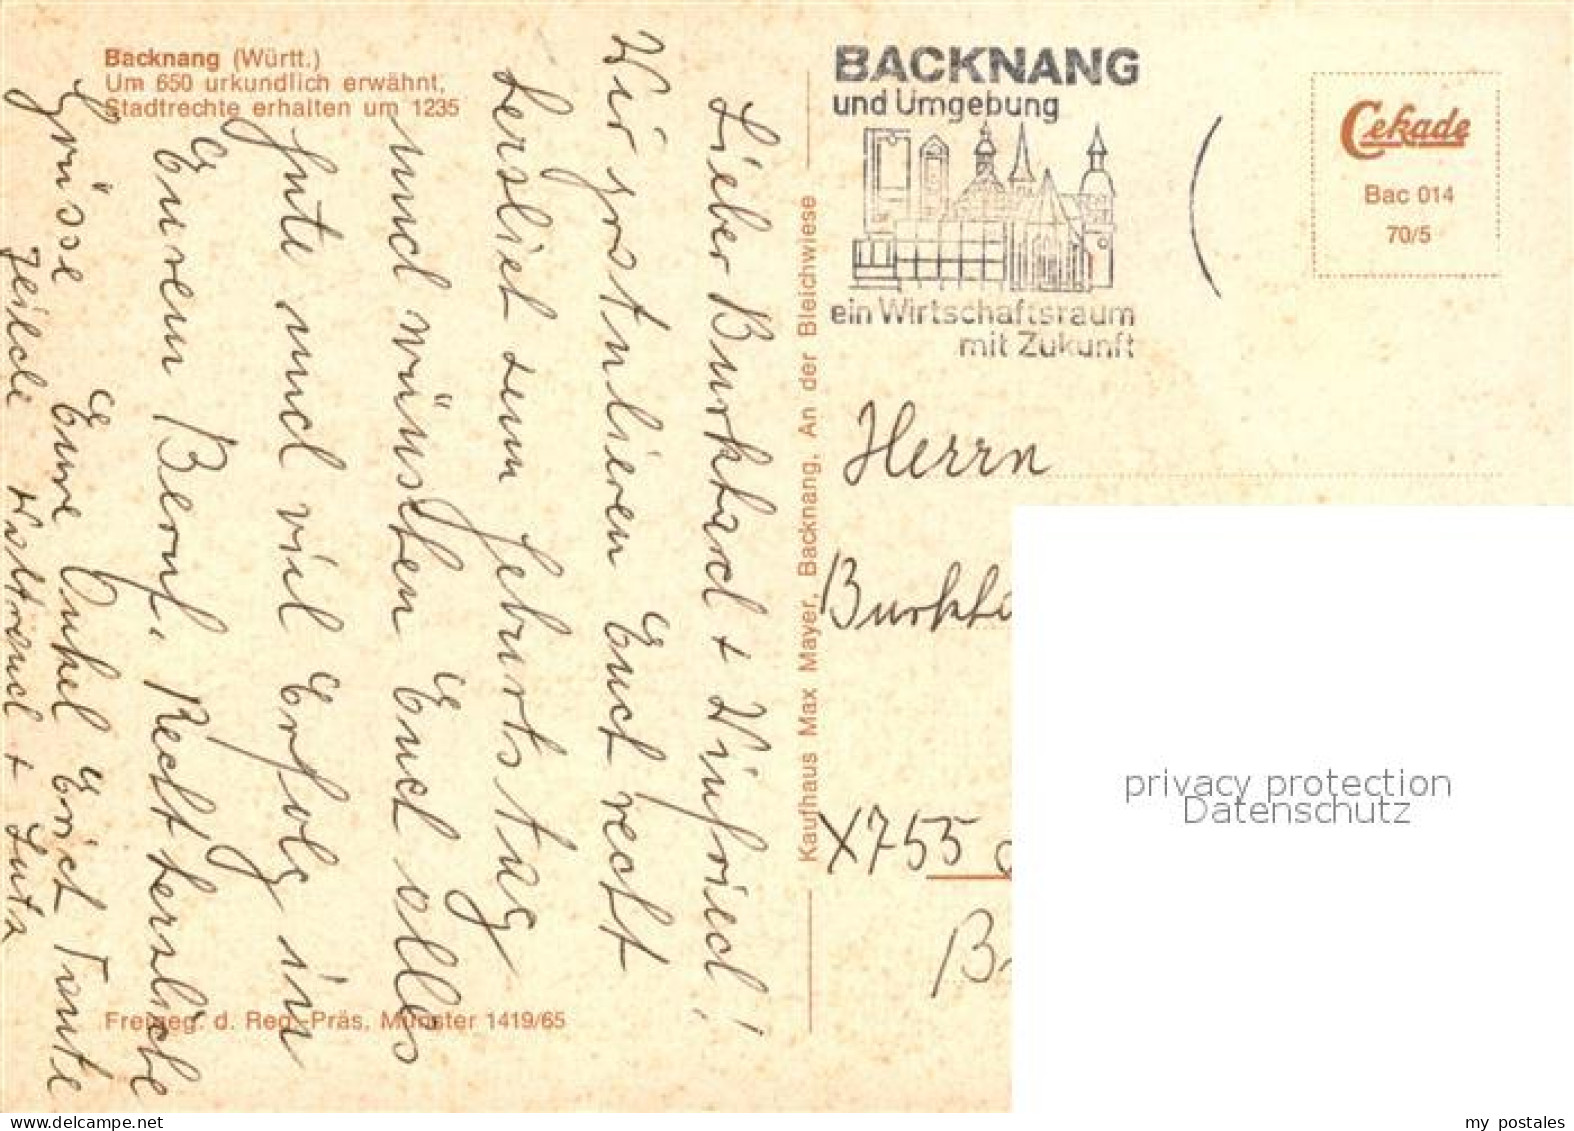 Backnang (Württ.)
Um 650 urkundlich erwähnt,
Stadtrechte erhalten um 1235
Lieber Burkhard + Winfried!
Wir gratulieren Euch recht
herzlich zum Geburtstag
und wünschen Euch alles
Gute und viel Erfolg in
Eurem Beruf. Recht herzliche
Grüsse Eure Onkel Erich Tante
Freigeg. d. Reg.-Präs. Münster 1419/65
Kaufhaus Max Mayer, Backnang, An der Bleichwiese
BACKNANG
und Umgebung
ein Wirtschaftsraum
mit Zukunft
Cekade
Bac 014
70/5
Herrn
X755
privacy protection
Datenschutz
my postales
www.delcampe.net